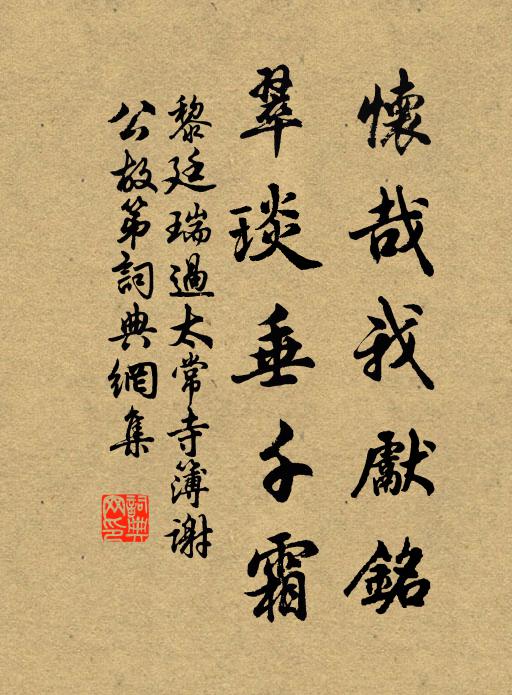 懷哉我獻銘
翠琰垂千霜
黎廷瑞過太常寺簿謝
公故第詞典網集
詞典網印